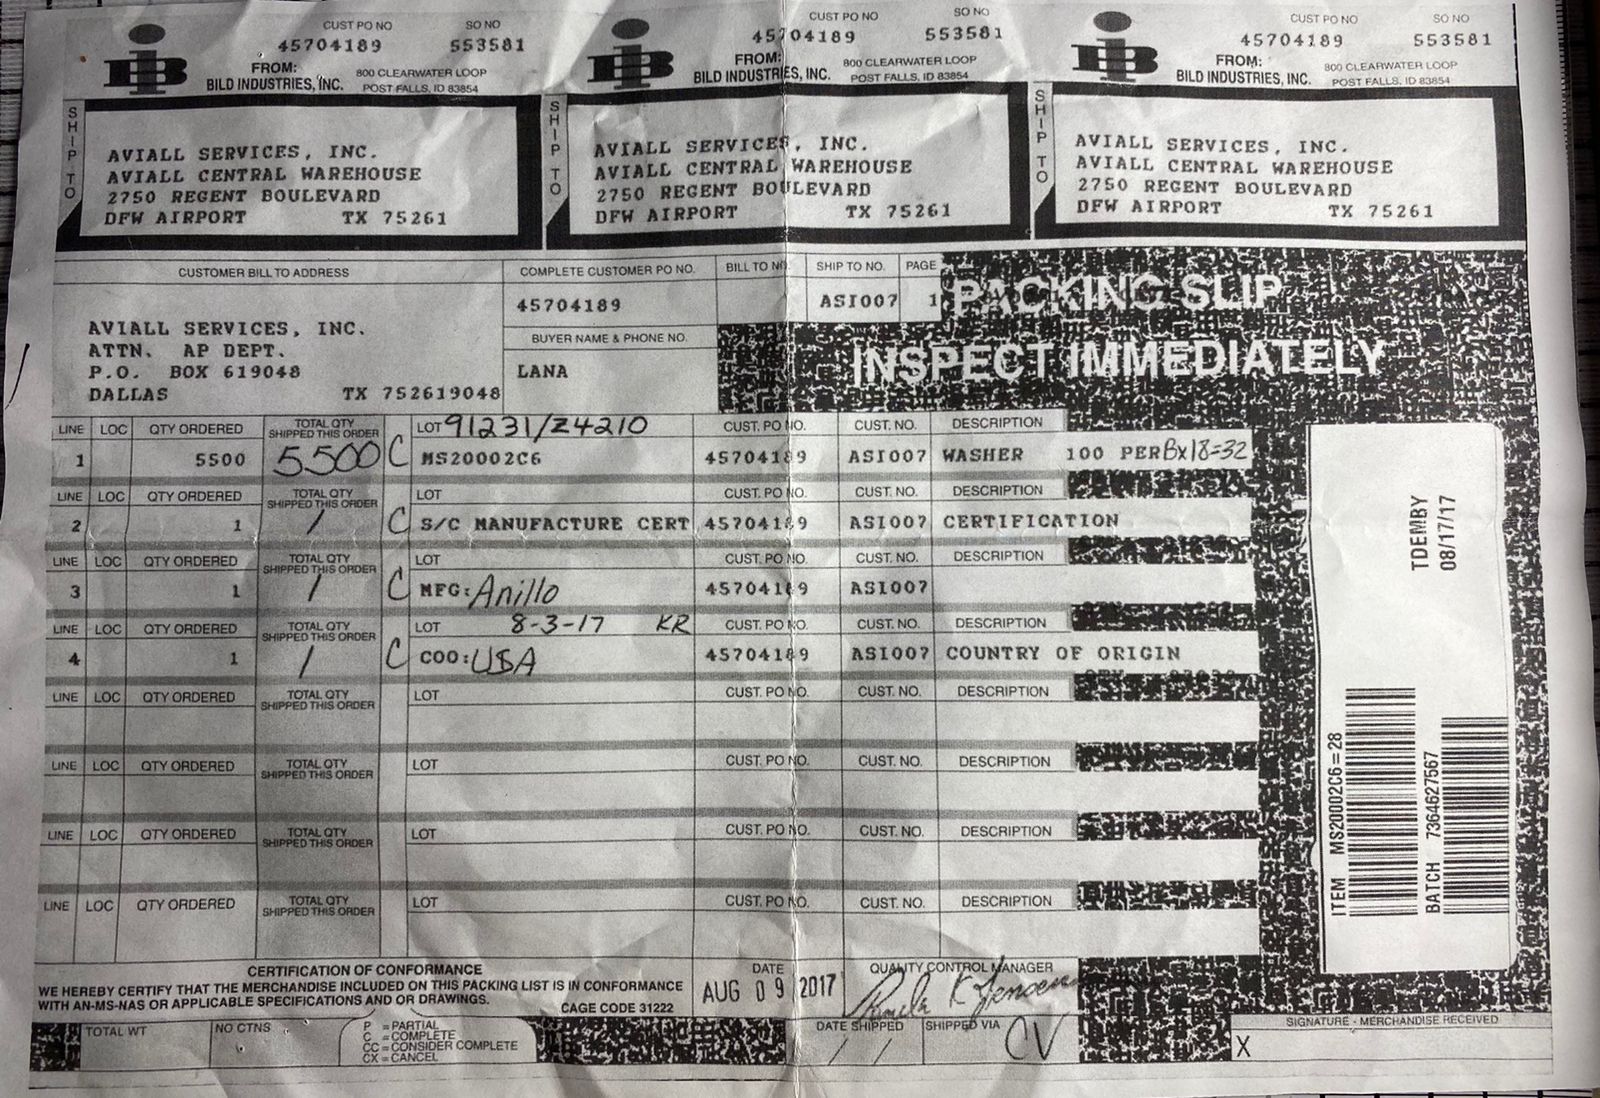 CUST PO NO SO NO
45704189 553581
FROM: 800 CLEARWATER LOOP
BILD INDUSTRIES, INC. POST FALLS, ID 83854
SHIP TO
AVIALL SERVICES, INC.
AVIALL CENTRAL WAREHOUSE
2750 REGENT BOULEVARD
DFW AIRPORT TX 75261
CUST PO NO SO NO
45704189 553581
FROM: 800 CLEARWATER LOOP
BILD INDUSTRIES, INC. POST FALLS, ID 83854
SHIP TO
AVIALL SERVICES, INC.
AVIALL CENTRAL WAREHOUSE
2750 REGENT BOULEVARD
DFW AIRPORT TX 75261
CUST PO NO SO NO
45704189 553581
FROM: 800 CLEARWATER LOOP
BILD INDUSTRIES, INC. POST FALLS, ID 83854
SHIP TO
AVIALL SERVICES, INC.
AVIALL CENTRAL WAREHOUSE
2750 REGENT BOULEVARD
DFW AIRPORT TX 75261
CUSTOMER BILL TO ADDRESS
AVIALL SERVICES, INC.
ATTN. AP DEPT.
P.O. BOX 619048
DALLAS TX 752619048
COMPLETE CUSTOMER PO NO. BILL TO NO. SHIP TO NO. PAGE
45704189 ASI007 1
BUYER NAME & PHONE NO.
LANA
PACKING SLIP
INSPECT IMMEDIATELY
LINE LOC QTY ORDERED TOTAL QTY SHIPPED THIS ORDER LOT 91231/Z4210 CUST. PO NO. CUST. NO. DESCRIPTION
1 5500 5500 C MS20002C6 45704189 ASI007 WASHER 100 PER Bx18=32
LINE LOC QTY ORDERED TOTAL QTY SHIPPED THIS ORDER LOT CUST. PO NO. CUST. NO. DESCRIPTION
2 1 1 C S/C MANUFACTURE CERT 45704189 ASI007 CERTIFICATION
LINE LOC QTY ORDERED TOTAL QTY SHIPPED THIS ORDER LOT CUST. PO NO. CUST. NO. DESCRIPTION
3 1 1 C MFG: Anillo 45704189 ASI007
LINE LOC QTY ORDERED TOTAL QTY SHIPPED THIS ORDER LOT 8-3-17 KR CUST. PO NO. CUST. NO. DESCRIPTION
4 1 1 C COO: USA 45704189 ASI007 COUNTRY OF ORIGIN
LINE LOC QTY ORDERED TOTAL QTY SHIPPED THIS ORDER LOT CUST. PO NO. CUST. NO. DESCRIPTION
LINE LOC QTY ORDERED TOTAL QTY SHIPPED THIS ORDER LOT CUST. PO NO. CUST. NO. DESCRIPTION
LINE LOC QTY ORDERED TOTAL QTY SHIPPED THIS ORDER LOT CUST. PO NO. CUST. NO. DESCRIPTION
LINE LOC QTY ORDERED TOTAL QTY SHIPPED THIS ORDER LOT CUST. PO NO. CUST. NO. DESCRIPTION
TDEMBY
08/17/17
ITEM MS20002C6=28
BATCH 7364627567
CERTIFICATION OF CONFORMANCE
WE HEREBY CERTIFY THAT THE MERCHANDISE INCLUDED ON THIS PACKING LIST IS IN CONFORMANCE
WITH AN-MS-NAS OR APPLICABLE SPECIFICATIONS AND OR DRAWINGS. CAGE CODE 31222
DATE
AUG 09 2017
QUALITY CONTROL MANAGER
Pamela K Jensen
TOTAL WT NO CTNS
P = PARTIAL
C = COMPLETE
CC = CONSIDER COMPLETE
CX = CANCEL
DATE SHIPPED SHIPPED VIA
/ / CV
SIGNATURE - MERCHANDISE RECEIVED
X